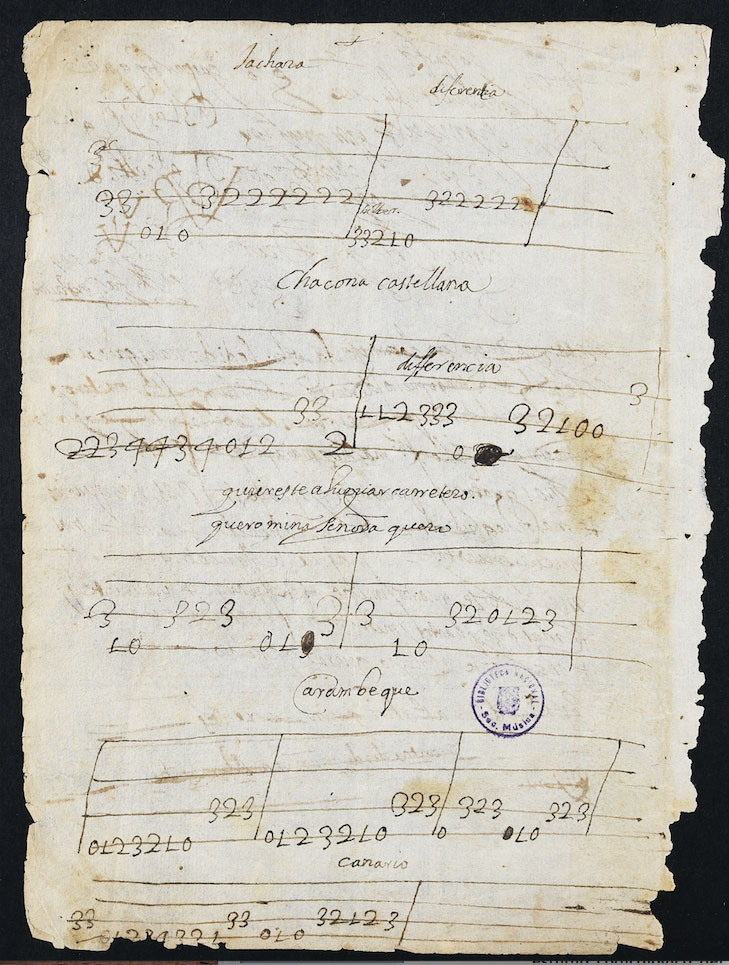 Jachara
diferencia
3
33 3222222 322222
010 33210
Chacona castellana
differencia
3
33 112333 32100
2234434012 2 0
quero mina senora quero
3 323 3 3 320123
10 010 10
Carambeque
BIBLIOTECA NACIONAL
Sec. Música
323 323 323 323
0123210 0123210 0 010
Canario
33 33 32123
010